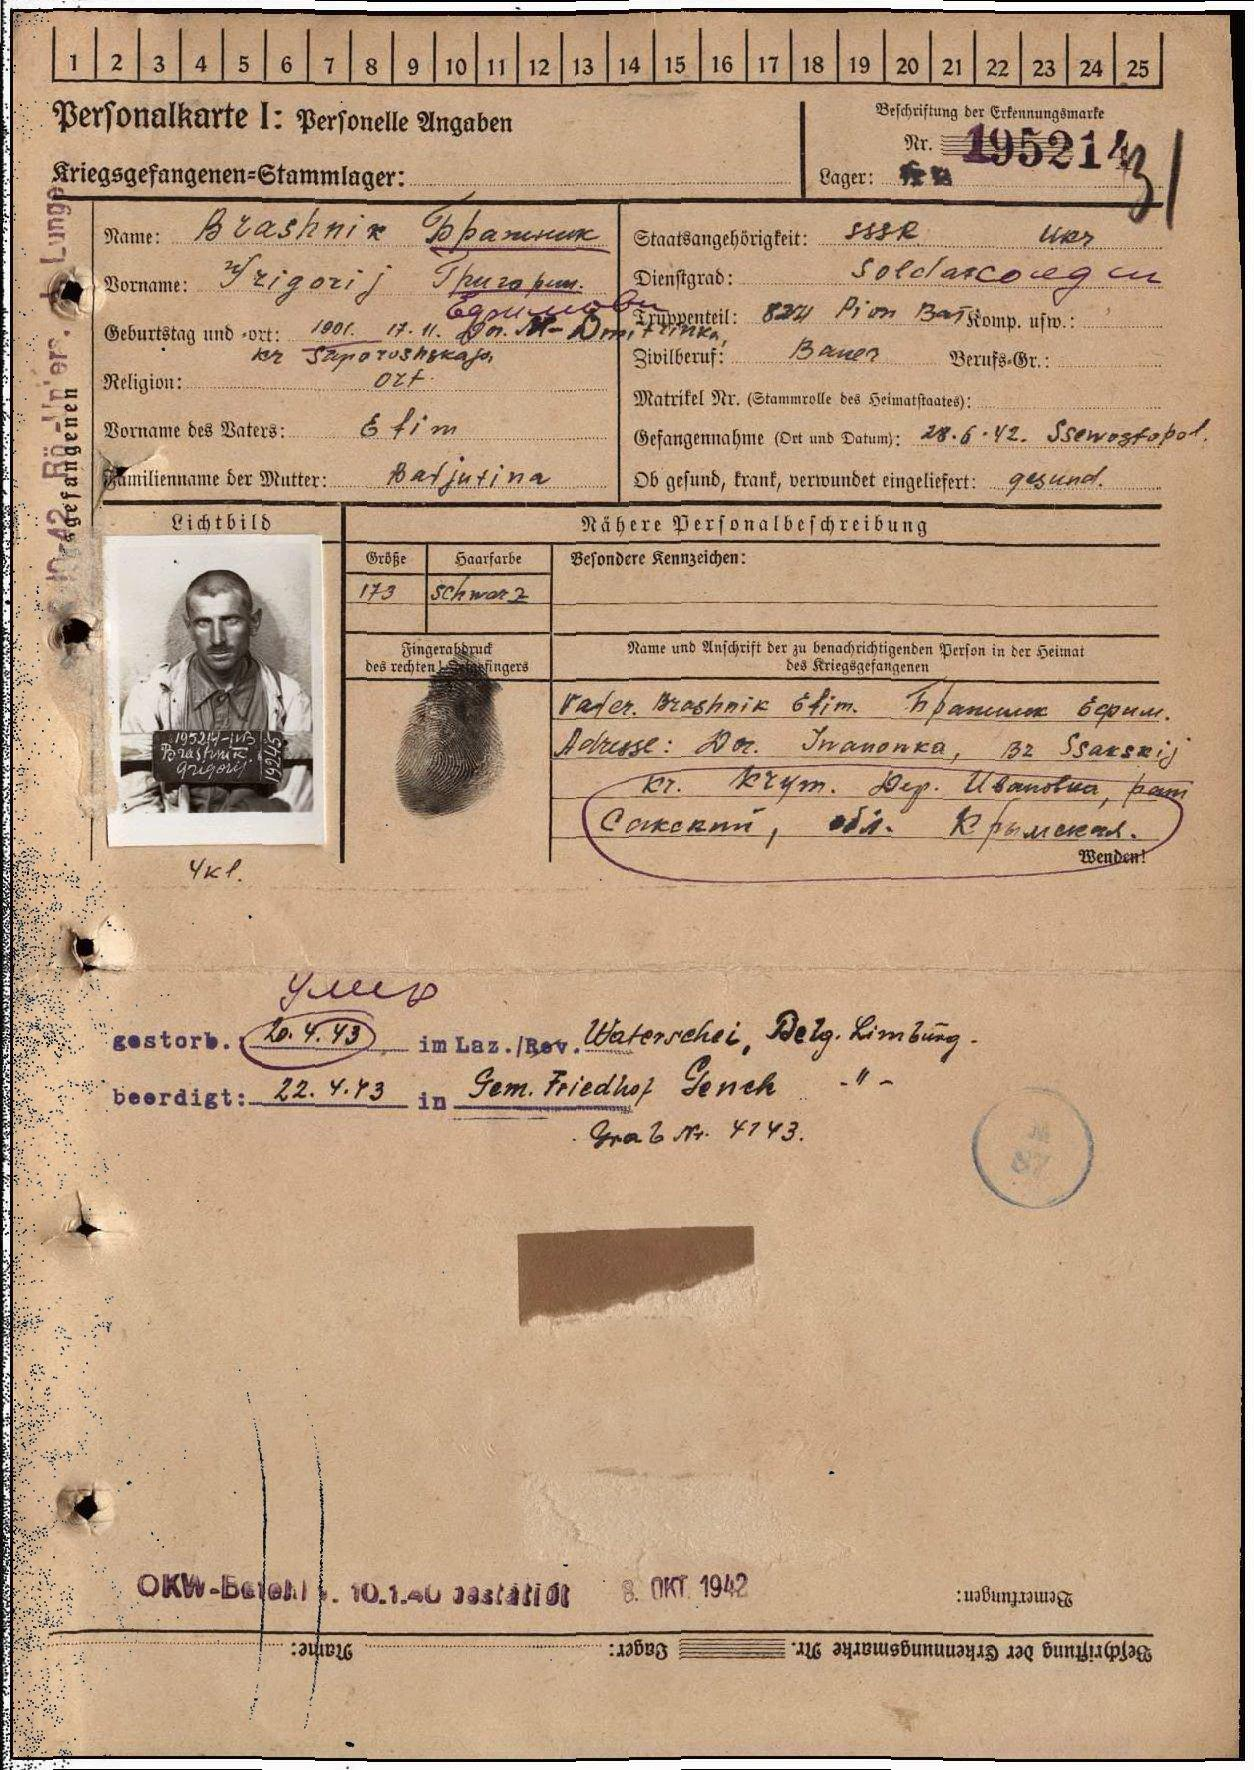 1 2 3 4 5 6 7 8 9 10 11 12 13 14 15 16 17 18 19 20 21 22 23 24 25
Personalkarte I: Personelle Angaben
Kriegsgefangenen-Stammlager:
Beschriftung der Erkennungsmarke
Nr. 195214
Lager:
Name: Brashnik Бражник
Vorname: Grigorij Григорий
Ефимович
Geburtstag und -ort: 1901. 17.11. Dor. M-Dmitrinka,
kr Saporoshskaja
Religion: ort.
Vorname des Vaters: Efim
Familienname der Mutter: Batjutina
Staatsangehörigkeit: SSSR Ukr
Dienstgrad: Soldat солдат
Truppenteil: 824 Pion Bat Komp. usw.:
Zivilberuf: Bauer Berufs-Gr.:
Matrikel Nr. (Stammrolle des Heimatstaates):
Gefangennahme (Ort und Datum): 28.6.42. Ssewostopol.
Ob gesund, krank, verwundet eingeliefert: gesund.
Lichtbild
Nähere Personalbeschreibung
Größe Haarfarbe Besondere Kennzeichen:
173 schwarz
Fingerabdruck
des rechten Zeigefingers
Name und Anschrift der zu benachrichtigenden Person in der Heimat
des Kriegsgefangenen
Vater. Brashnik Efim. Бражник Ефим.
Adresse: Dor. Iwanowka, Bz Ssakskij
kr. Krym. Дер. Ивановка,
Сакский, обл. Крымская.
Wenden!
195214-IVB
Brashnik
Grigorij
19245
4 kl.
умер
gestorb. 20.4.43 im Laz./Rev. Waterschei, Belg. Limburg.
beerdigt: 22.4.43 in Gem. Friedhof Genck -"-
Grab Nr. 4143.
M
87
OKW-Befehl v. 10.1.40 bestätigt 8. OKT. 1942
Bemerkungen:
Beschriftung der Erkennungsmarke Nr. Lager: Name: